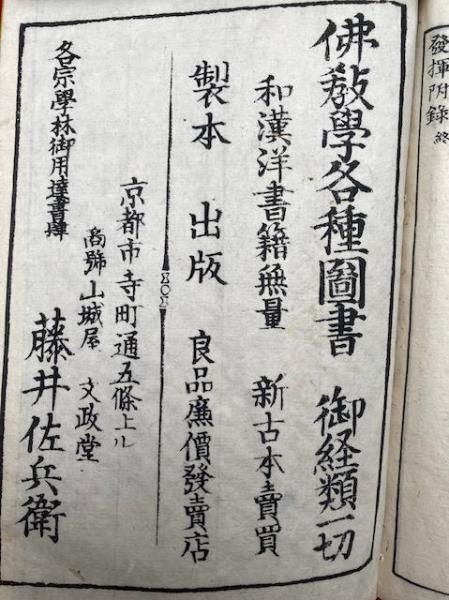 發揮閃録 終
佛教學各種圖書 御経類一切
和漢洋書籍無量 新古本賣買
製本 出版 良品廉價發賣店
京都市寺町通五條上ル
商號 山城屋 文政堂
各宗學林御用達書肆 藤井佐兵衛